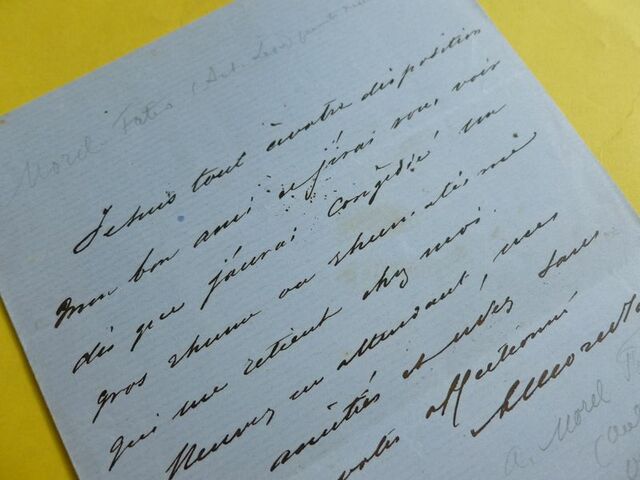 Morel Fatio (Art.
Je suis tout à votre disposition
mon bon ami et j'irai vous voir
dès que j'aurai congédié un
gros rhume ou rhumatisme
qui me retient chez moi.
Recevez en attendant, mes
amitiés et
votre affectionné
A. Morel